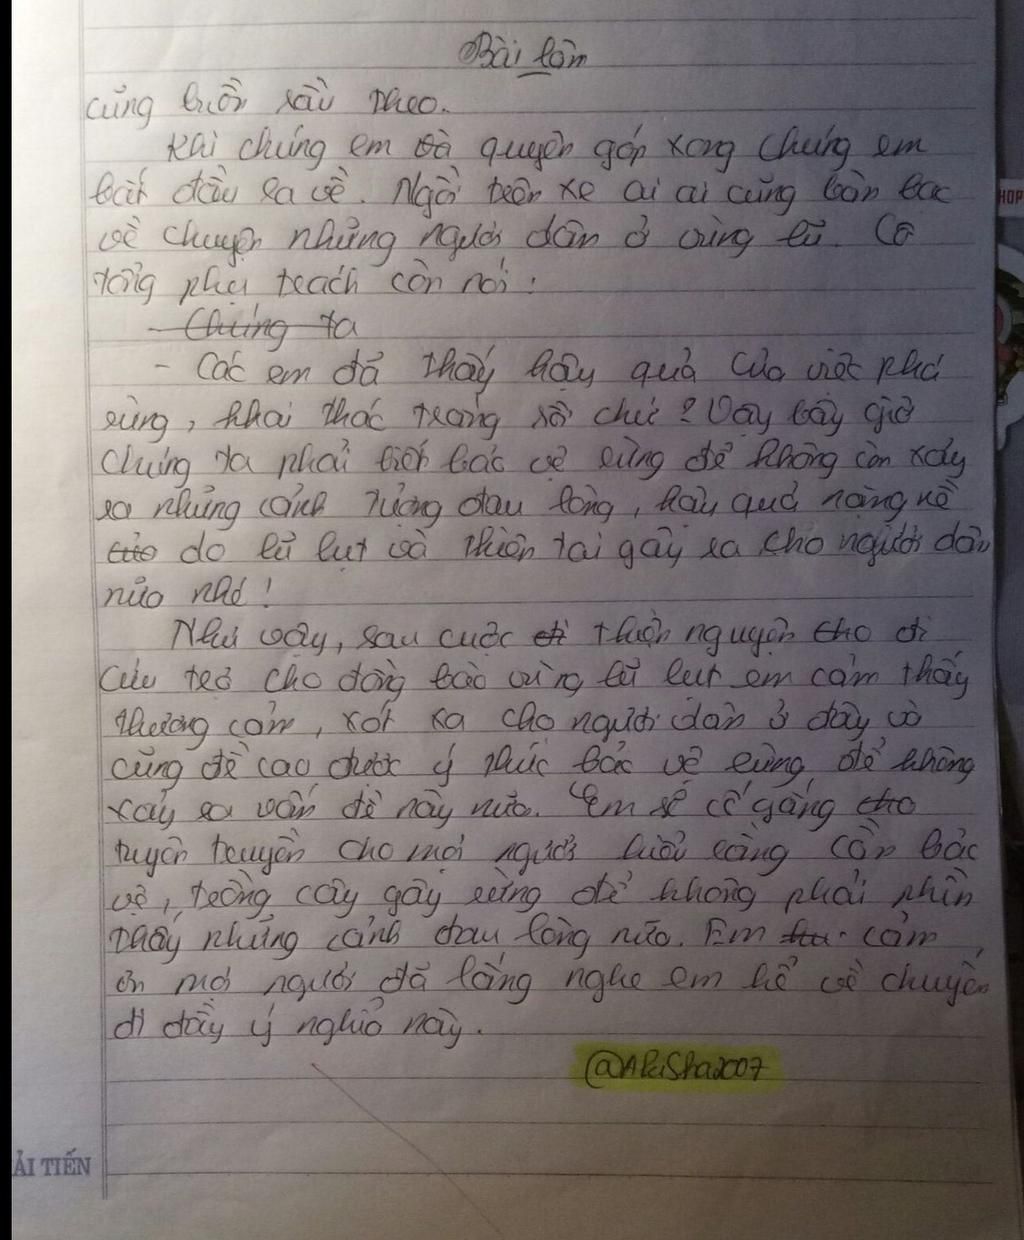 Bài làm
cũng buồn sầu theo.
Khi chúng em đã quyên góp xong chúng em
bắt đầu ra về. Ngồi trên xe ai ai cũng bàn bạc
về chuyện những người dân ở vùng lũ. Cô
tổng phụ trách còn nói:
- Chúng ta
- Các em đã thấy hậu quả của việc phá
rừng, khai thác trong rồi chứ? Vậy bây giờ
chúng ta phải biết bảo vệ rừng để không còn xảy
ra những cảnh tượng đau lòng, hậu quả nặng nề
do lũ lụt và thiên tai gây ra cho người dân
nữa nhé!
Như vậy, sau cuộc đi thiện nguyện cho đi
cứu trợ cho đồng bào vùng lũ lụt em cảm thấy
thương cảm, xót xa cho người dân ở đây và
cũng đề cao được ý thức bảo vệ rừng để không
xảy ra vấn đề này nữa. Em sẽ cố gắng cho
tuyên truyền cho mọi người rằng cần bảo
vệ, trồng cây gây rừng để không phải nhìn
thấy những cảnh đau lòng nữa. Em cảm
ơn mọi người đã lắng nghe em kể về chuyến
đi đầy ý nghĩa này.
@AkiSha2007
ẢI TIẾN
HOP